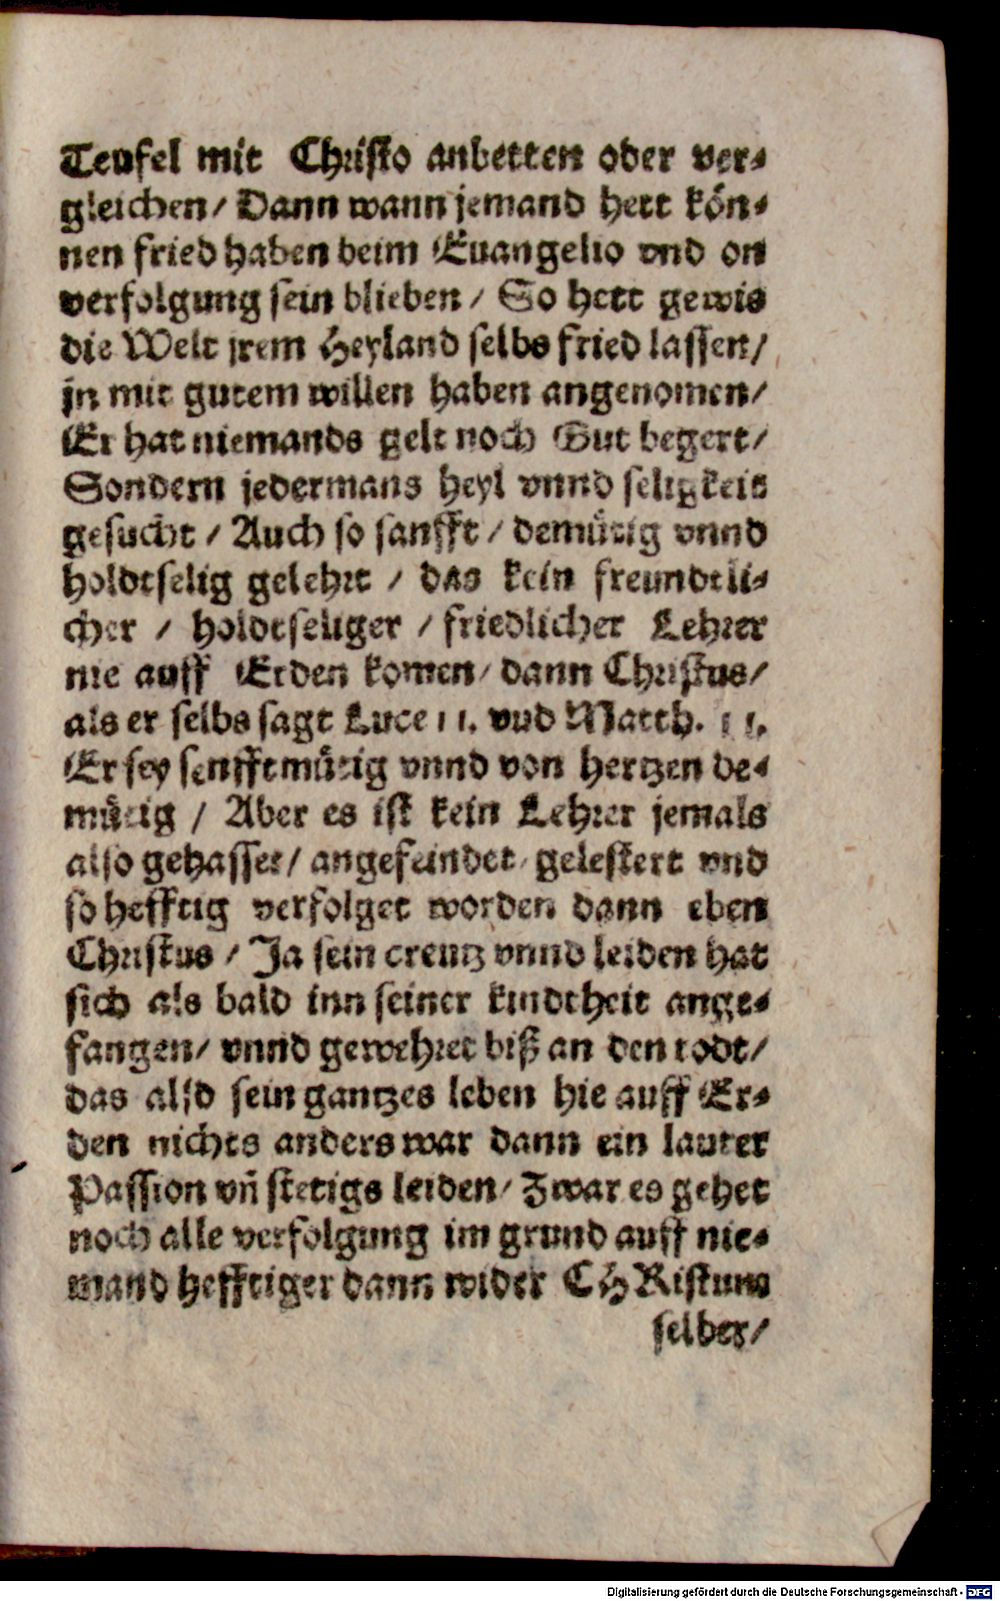 Teufel mit Christo anbetten oder ver-
gleichen / Dann wann jemand hett kön-
nen fried haben beim Euangelio vnd on
verfolgung sein blieben / So hett gewis
die Welt jrem Heyland selbs fried lassen /
jn mit gutem willen haben angenomen /
Er hat niemands gelt noch Gut begert /
Sondern jedermans heyl vnnd seligkeit
gesucht / Auch so sanfft / demütig vnnd
holdtselig gelehrt / das kein freundtli-
cher / holdtseliger / friedlicher Lehrer
nie auff Erden komen / dann Christus /
als er selbs sagt Luce 11. vnd Matth. 11.
Er sey senfftmütig vnnd von hertzen de-
mütig / Aber es ist kein Lehrer jemals
also gehasset / angefeindet / gelestert vnd
so hefftig verfolget worden dann eben
Christus / Ja sein creutz vnnd leiden hat
sich als bald inn seiner kindtheit ange-
fangen / vnnd gewehret biß an den todt /
das also sein gantzes leben hie auff Er-
den nichts anders war dann ein lauter
Passion vñ stetigs leiden / Zwar es gehet
noch alle verfolgung im grund auff nie-
mand hefftiger dann wider CHRistum
selber /
Digitalisierung gefördert durch die Deutsche Forschungsgemeinschaft - DFG